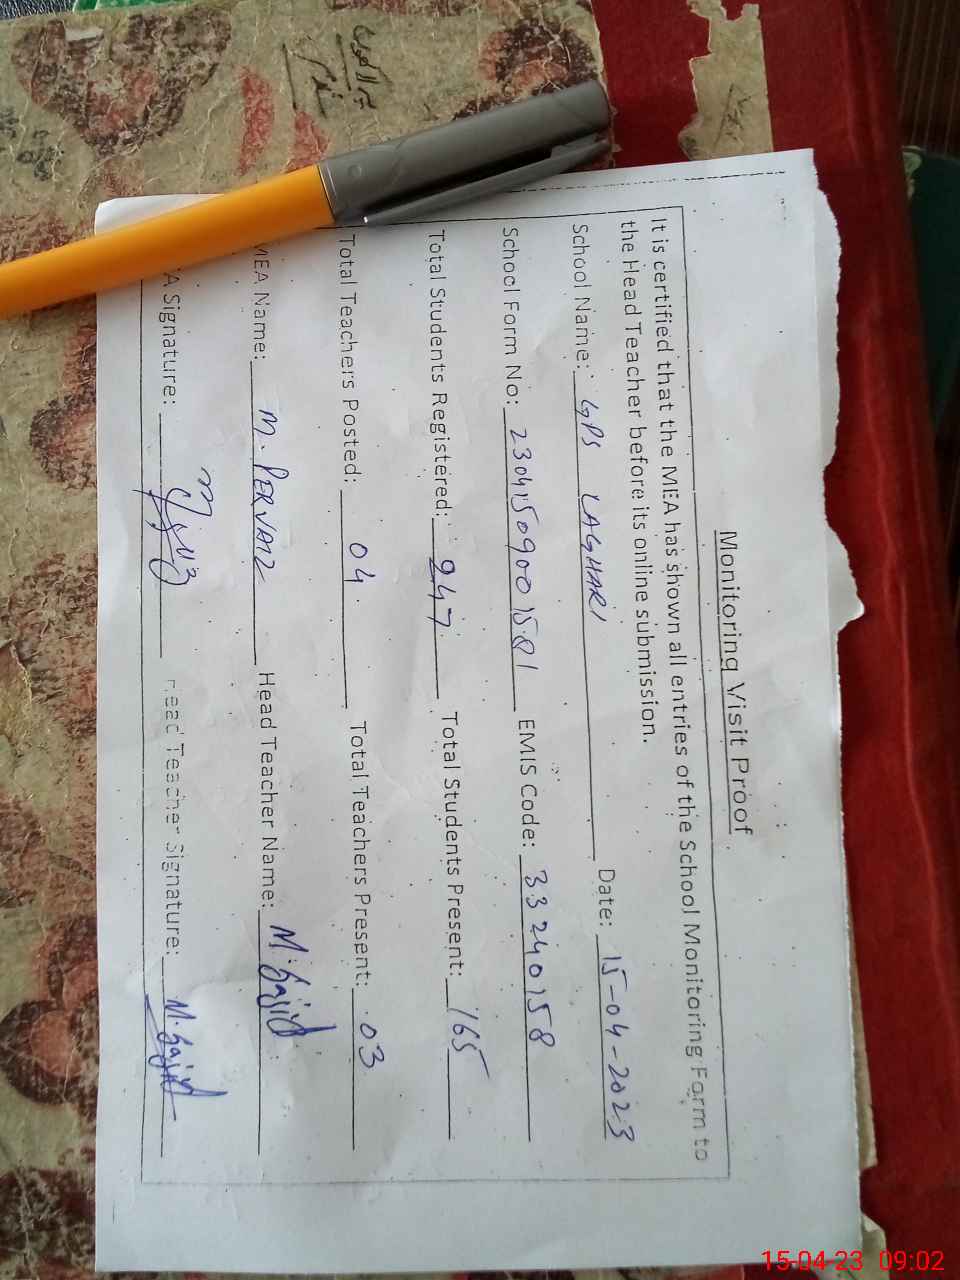 Monitoring Visit Proof
It is certified that the MEA has shown all entries of the School Monitoring Form to
the Head Teacher before its online submission.
School Name: GPS LAGHARI Date: 15-04-2023
School Form No: 23041509001581 EMIS Code: 33240158
Total Students Registered: 247 Total Students Present: 165
Total Teachers Posted: 04 Total Teachers Present: 03
MEA Name: M. PERVAIZ Head Teacher Name: M. Sajid
A Signature: Head Teacher Signature: M. Sajid
15-04-23 09:02